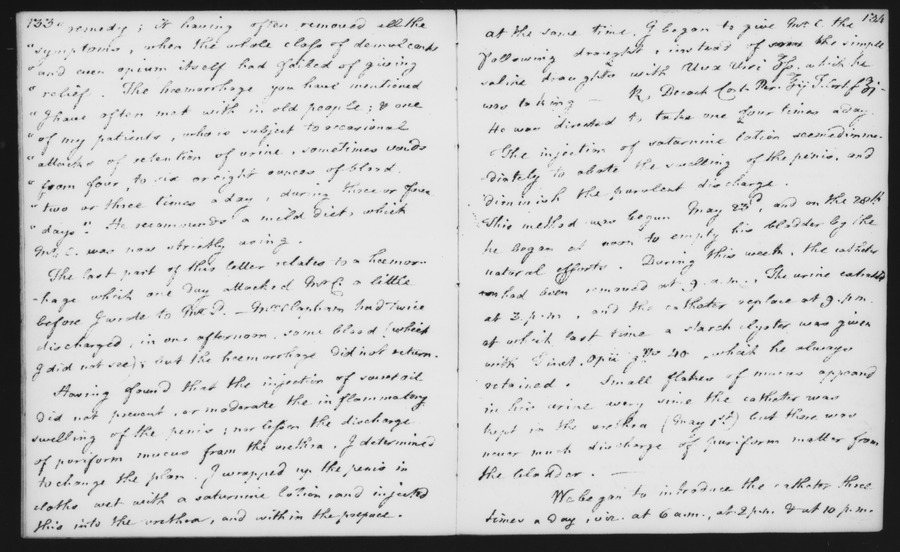 133
" remedy; it having often removed all the
" symptoms, when the whole class of demulcents
" and even opium itself had failed of giving
" relief. The hæmorrhage you have mentioned
" I have often met with in old people; & one
" of my patients, who is subject to occasional
" attacks of retention of urine, sometimes voids
" from four, to six or eight ounces of blood
" two or three times a day, during three or four
" days". He recommends a mild diet, which
Mr. C. was now strictly using.
The last part of this letter relates to a hæmorr-
-hage which one day attacked Mr C. a little
before I wrote to Mr. D. — Mr McClanham had twice
discharged, in one afternoon, some blood (which
I did not see); but the hæmorrhage did not return.
Having found that the injection of sweet oil
did not prevent, or moderate the inflammatory
swelling of the penis; nor lessen the discharge
of puriform mucus from the urethra, I determined
to change the plan. I wrapped up the penis in
cloths wet with a saturnine lotion, and injected
this into the urethra, and within the prepuce.
134
at the same time. I began to give Mr. C. the
following draught, instead of the simple
saline draughts with Uvæ Ursi ʒſs, which he
was taking — ℞ Decoct. Cort. Per.
He was directed to take one four times a day.
The injection of saturnine lotion seemed imme-
diately to abate the swelling of the penis, and
diminish the purulent discharge.
This method was begun May 23d, and on the 28th
he began at noon to empty his bladder by the
natural efforts. During this week, the catheter
had been removed at 9. a.m., The urine evacuated
at 2. p.m, and the catheter replace at 9. p.m.
at which last time a starch clyster was given
with Tinct. Opii gtts 40, which he always
retained. Small flakes of mucus appeared
in his urine very since the catheter was
kept in the urethra (May 1st) but there was
never much discharge of puriform matter from
the bladder. —
We began to introduce the catheter three
times a day, viz. at 6 a.m., at 2 p.m. & at 10 p.m.